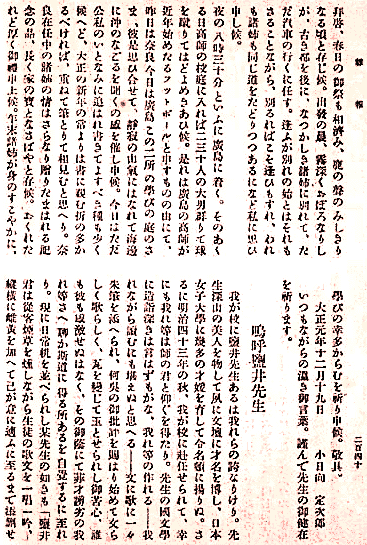 雜報
二百四十
拜啓、春日の御祭も相濟み、鹿の聲のみしきり
なる頃と存じ候。出發の晨、霧深くおぼろなりし
が、古き都を後に、なつかしき諸姉に別れて、た
だ汽車の行くに任す。逢ふが別れの始とはそれも
さることながら、別るればこそ逢ひもすれ、われ
も諸姉も同じ道をたどりつつあるになど私に思ひ
申し候。
夜の八時三十分といふに廣島に着く。そのあく
る日高師の校庭に入れば二三十人の大男群りて球
を蹴りてはどよめきあひ候。是れは廣島の高師が
近年始めたるフットボールと申すものの由にて、
昨日は奈良今日は廣島この二所の學びの庭のさ
ま、彼是思ひ合せて、靜寂の山氣にはなれて海邊
に沖のなるを聞くの感を催し申候。今日はただ
公私のいとなみに追はれ書きてよすべき種も少く
候へど、大正の新年の常よりは書に親む折の多か
るべければ、重ねて筆とりて相見むと思ひ候。奈
良在任中の諸姉の情はさらなり贈りたまはれる記
念の品、長く家の寶となさばやと存候。おくれた
れど厚く御禮申上候。年末諸姉が身のすこやかに、
學びの幸多からむを祈り申候。敬具。
大正元年十二月十九日　小日向　定次郎
いつもながらの溫き御言葉。謹んで先生の御健在
を祈ります。
嗚呼鹽井先生
我が校に鹽井先生あるは我れらの誇なりけり。先
生深山の美人を物して夙に文壇に才名を博し、日本
女子大學に幾多の才媛を育して令名頗に揚りぬ。さ
るに明治四十三年の秋、我が校に赴任せられて、幸
にも我れ等は師の君と仰ぐを得たり。先生の國文學
に造詣深きは言はずもがな、我れ等の作れる――我
れながら讀むにも堪えぬと思へる――文に歌に一々
朱筆を添へられ、何呉の御批評を賜はり始めて文ら
しく歌らしく、瓦も變じて玉とせられし御苦心、誰
も彼も感激せぬはなく、その御蔭にて菲才謭劣の我
れ等さへ、聊か斯道に得る所あるを自覺するに至れ
り。現に日常机を並べられし某先生の如きも「鹽井
君は從容煙草を燻しながら生徒の歌文を一唱一吟、
縱橫に雌黃を加へて己が意に適ふに至るまで添刪せ